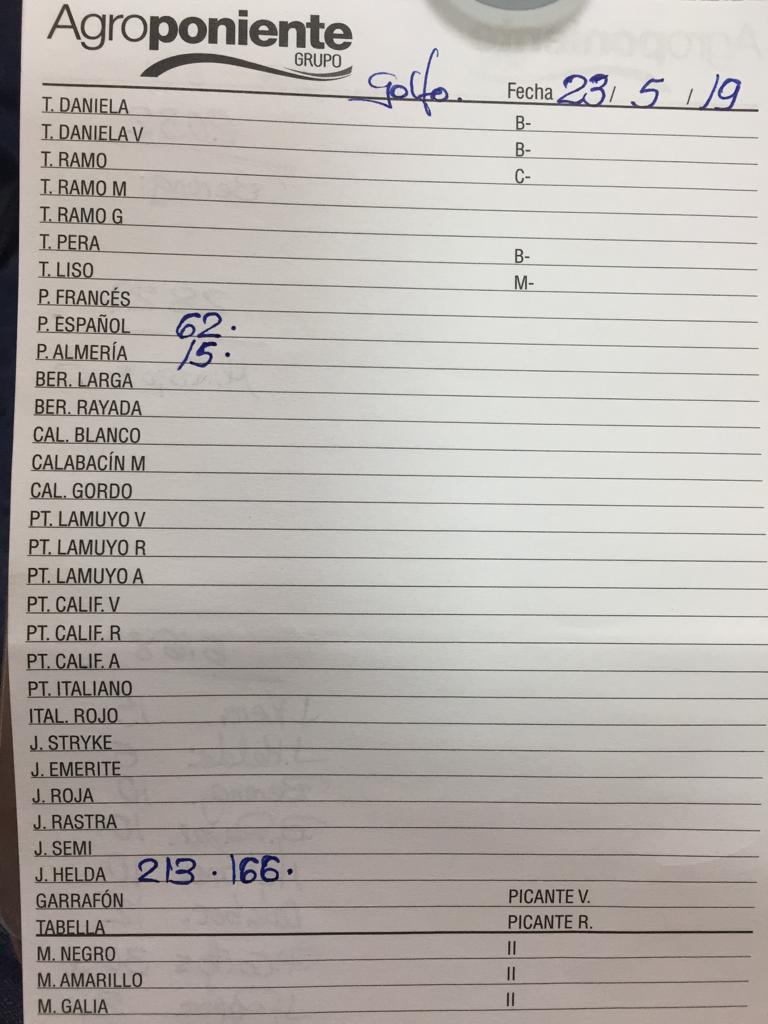 Agroponiente
GRUPO
Golfo. Fecha 23/ 5 / 19
T. DANIELA B-
T. DANIELA V B-
T. RAMO C-
T. RAMO M
T. RAMO G
T. PERA B-
T. LISO M-
P. FRANCÉS
P. ESPAÑOL 62.
P. ALMERÍA 15.
BER. LARGA
BER. RAYADA
CAL. BLANCO
CALABACÍN M
CAL. GORDO
PT. LAMUYO V
PT. LAMUYO R
PT. LAMUYO A
PT. CALIF. V
PT. CALIF. R
PT. CALIF. A
PT. ITALIANO
ITAL. ROJO
J. STRYKE
J. EMERITE
J. ROJA
J. RASTRA
J. SEMI
J. HELDA 213 . 166.
GARRAFÓN PICANTE V.
TABELLA PICANTE R.
M. NEGRO II
M. AMARILLO II
M. GALIA II